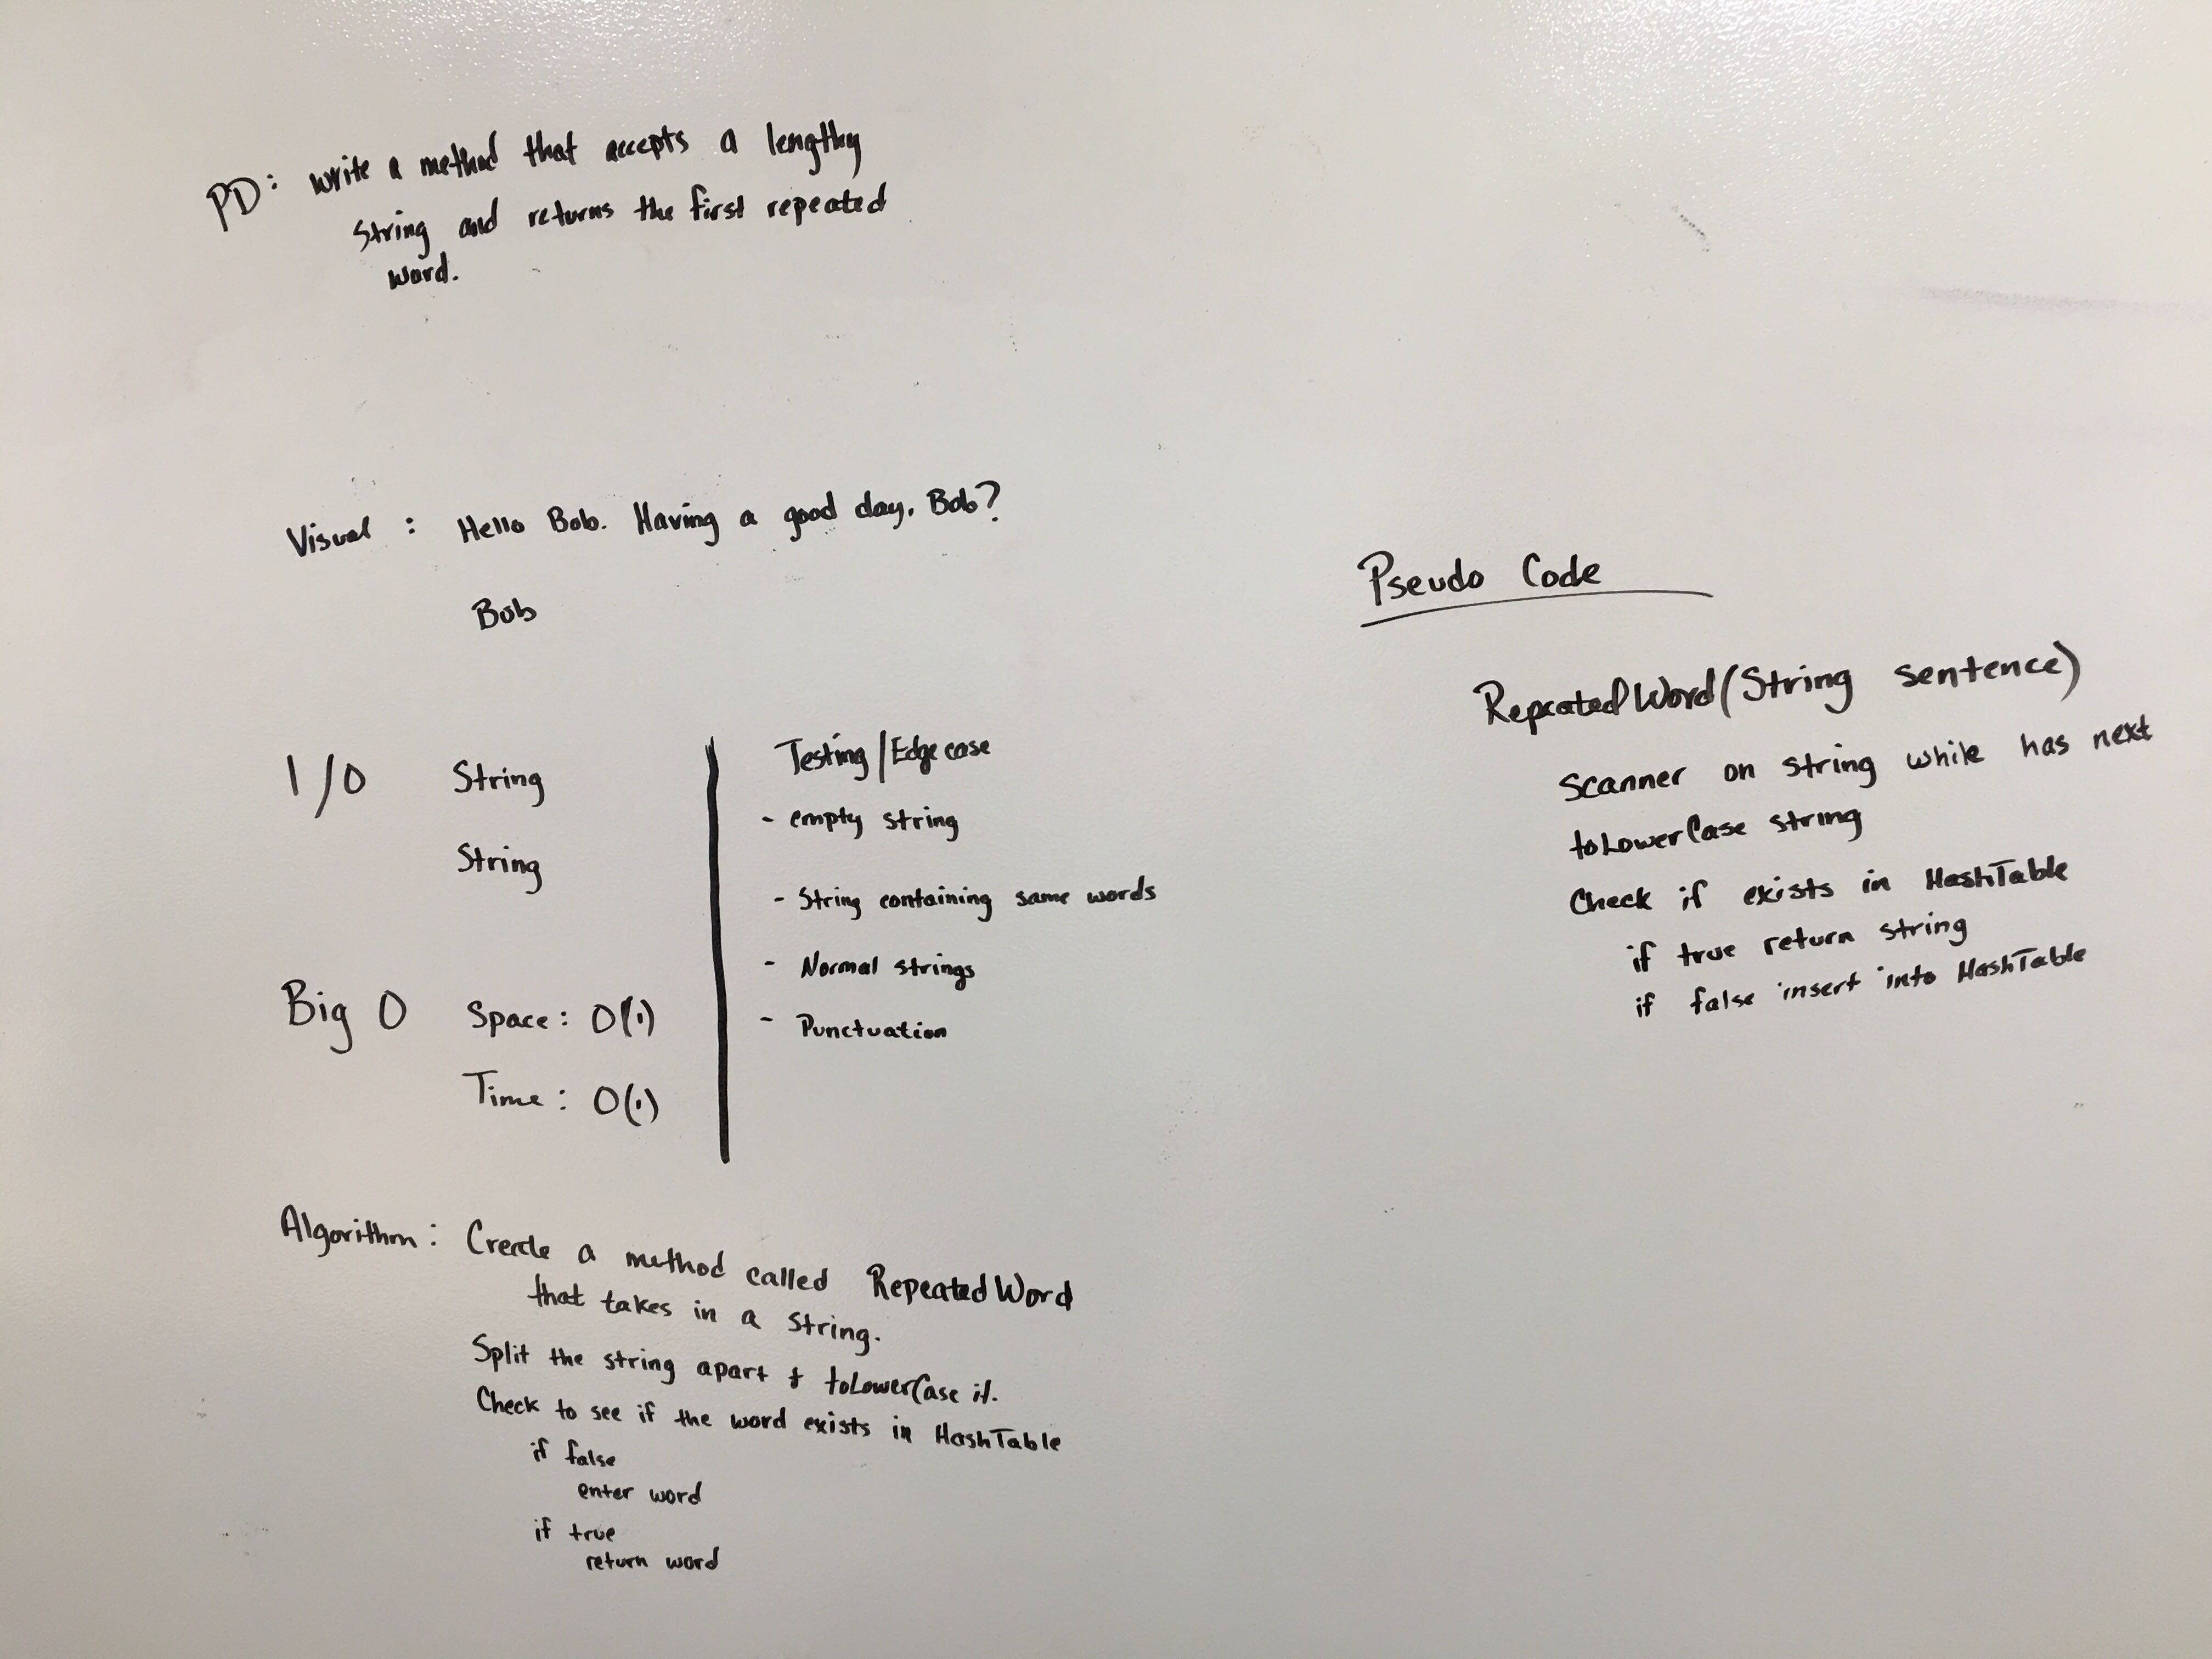 PD: write a method that accepts a lengthy
String and returns the first repeated
word.
Visual : Hello Bob. Having a good day, Bob?
Bob
I/O String
String
Big O Space: O(1)
Time: O(1)
Testing/Edge case
- empty string
- String containing same words
- Normal strings
- Punctuation
Algorithm: Create a method called RepeatedWord
that takes in a string.
Split the string apart & toLowerCase it.
Check to see if the word exists in HashTable
if false
enter word
if true
return word
Pseudo Code
RepeatedWord(String sentence)
Scanner on string while has next
toLowerCase string
Check if exists in HashTable
if true return string
if false insert into HashTable